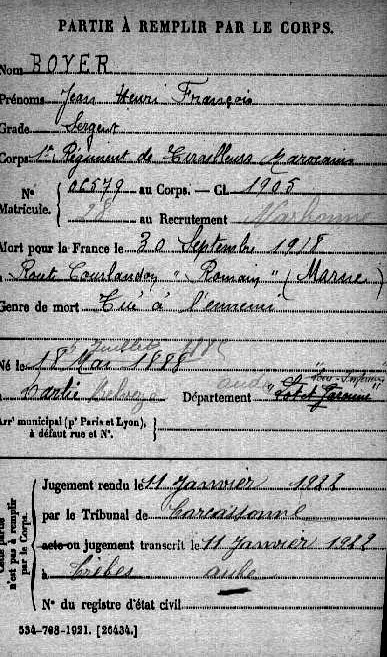 PARTIE À REMPLIR PAR LE CORPS.
Nom BOYER
Prénoms Jean Henri François
Grade Sergent
Corps 1er Régiment de Tirailleurs Marocains
N° Matricule. 06579 au Corps. — Cl. 1905
98 au Recrutement Narbonne
Mort pour la France le 30 Septembre 1918
à Route Courlandon "Romain" (Marne)
Genre de mort Tué à l'ennemi
Juillet 1885
Né le 18 Mai 1888
à Département Lot et Garonne
Arrt municipal (pr Paris et Lyon), à défaut rue et N°.
n'est pas à remplir par le Corps.
Jugement rendu le 11 Janvier 1922
par le Tribunal de Carcassonne
acte ou jugement transcrit le 11 Janvier 1922
à Trèbes aude
N° du registre d'état civil
534-708-1921. [26434.]